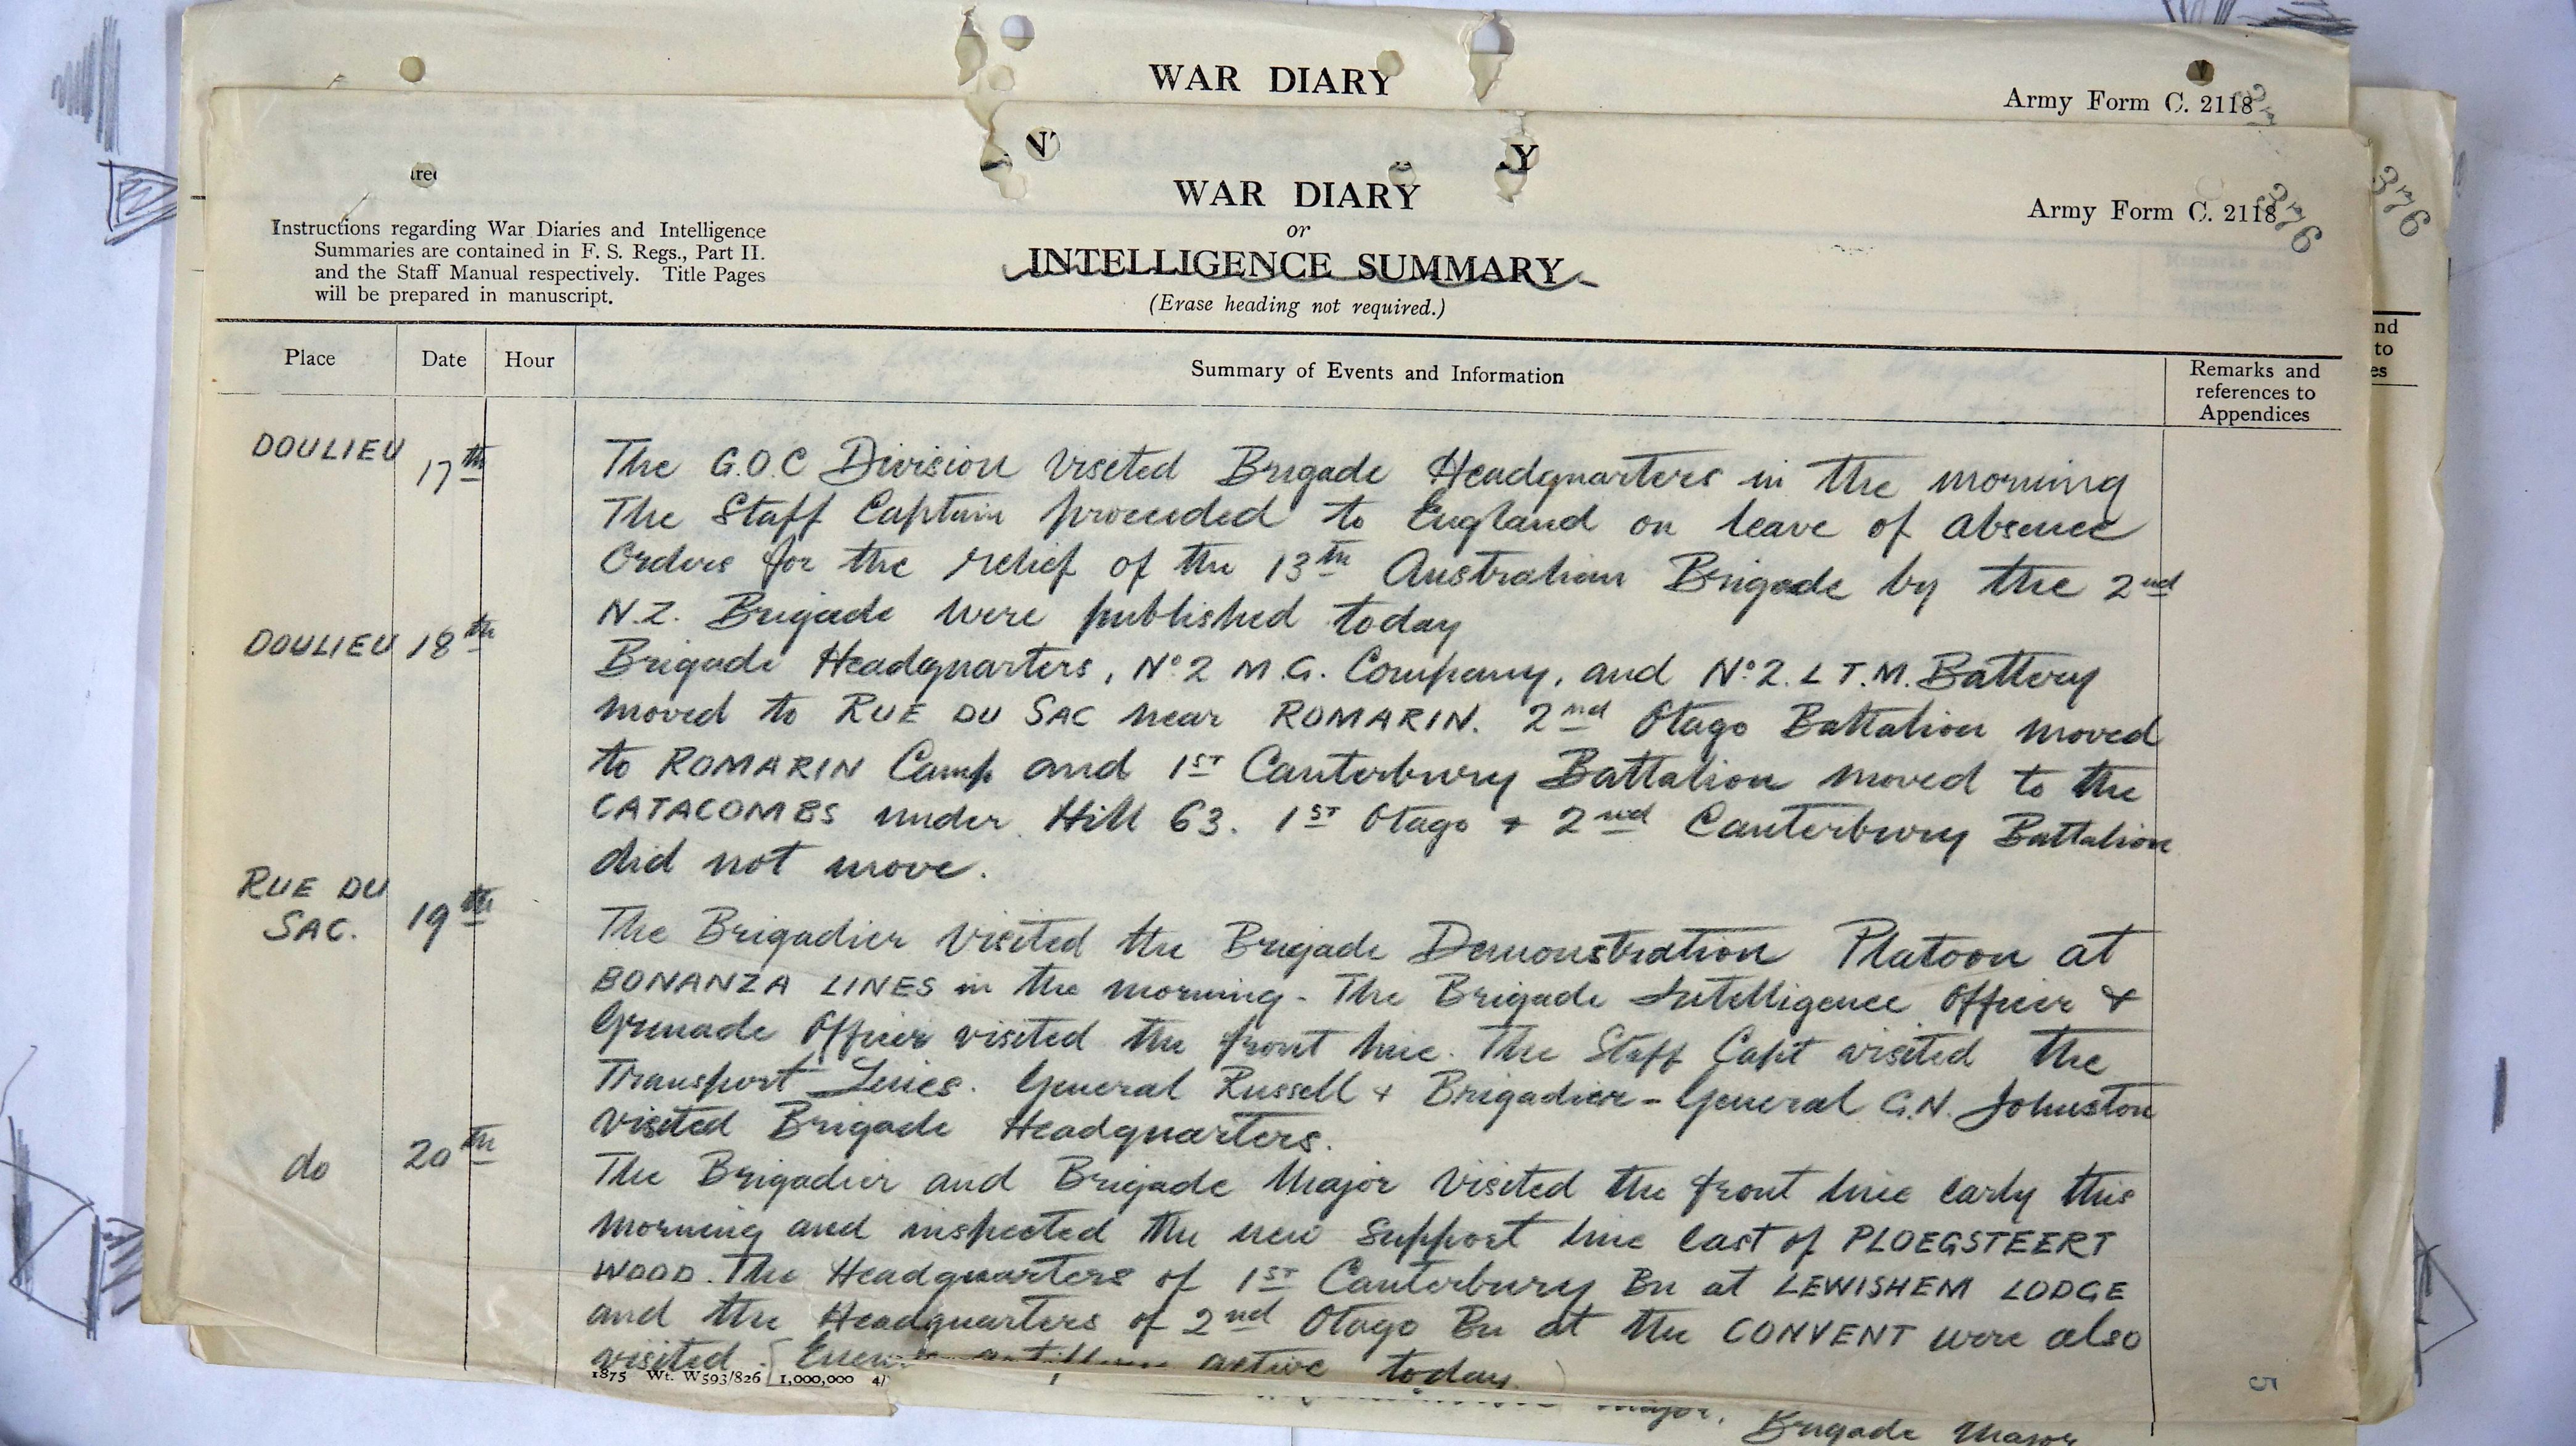 WAR DIARY
Army Form C. 2118
WAR DIARY
or
INTELLIGENCE SUMMARY
(Erase heading not required.)
Army Form C. 2118
376
376
Instructions regarding War Diaries and Intelligence
Summaries are contained in F. S. Regs., Part II.
and the Staff Manual respectively. Title Pages
will be prepared in manuscript.
nd
to
es
Place Date Hour Summary of Events and Information Remarks and
references to
Appendices
DOULIEU 17th The G.O.C Division visited Brigade Headquarters in the morning
The Staff Captain proceeded to England on leave of absence
Orders for the relief of the 13th Australian Brigade by the 2nd
N.Z. Brigade were published today
DOULIEU 18th Brigade Headquarters, No 2 M.G. Company, and No 2. L T.M. Battery
moved to RUE DU SAC near ROMARIN. 2nd Otago Battalion moved
to ROMARIN Camp and 1ST Canterbury Battalion moved to the
CATACOMBS under Hill 63. 1ST Otago + 2nd Canterbury Battalion
did not move.
RUE DU
SAC. 19th The Brigadier visited the Brigade Demonstration Platoon at
BONANZA LINES in the morning - The Brigade Intelligence Officer +
Grenade Officer visited the front line. The Staff Capt visited the
Transport Lines. General Russell + Brigadier-General G.N. Johnston
visited Brigade Headquarters.
do 20th The Brigadier and Brigade Major visited the front line early this
morning and inspected the new support line East of PLOEGSTEERT
WOOD. The Headquarters of 1ST Canterbury Bn at LEWISHEM LODGE
and the Headquarters of 2nd Otago Bn at the CONVENT were also
visited. active today.
1875 Wt. W593/826 1,000,000 4/
5
Major, Brigade Major